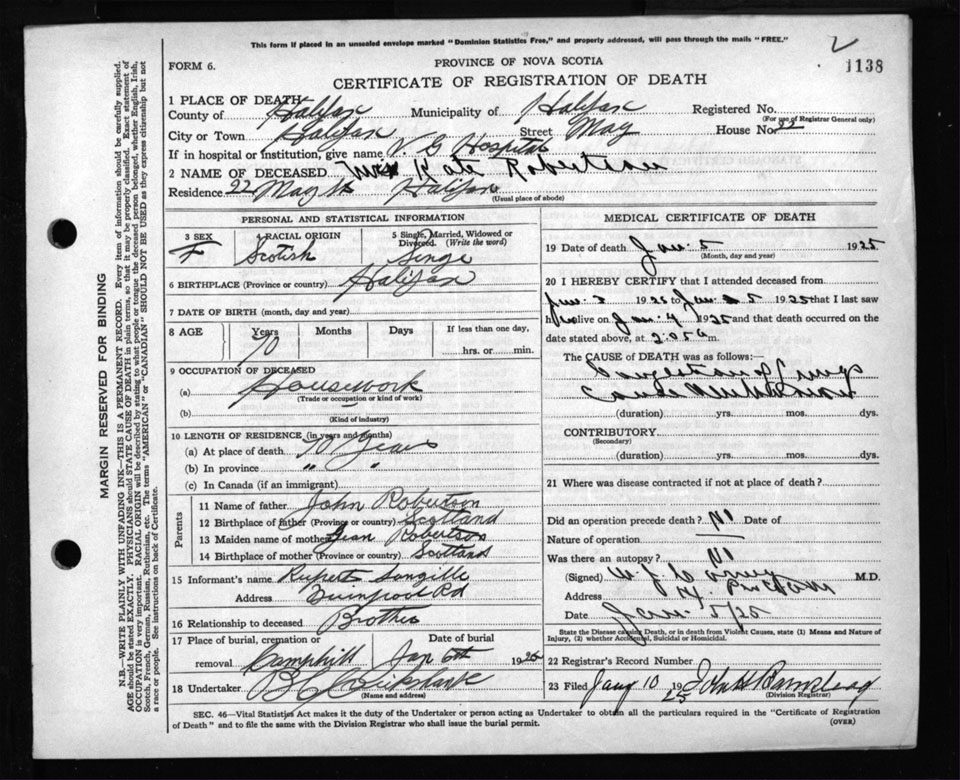 This form if placed in an unsealed envelope marked "Dominion Statistics Free," and properly addressed, will pass through the mails "FREE."
FORM 6.
PROVINCE OF NOVA SCOTIA
1138
CERTIFICATE OF REGISTRATION OF DEATH
MARGIN RESERVED FOR BINDING
N.B.—WRITE PLAINLY WITH UNFADING INK—THIS IS A PERMANENT RECORD. Every item of information should be carefully supplied.
AGE should be stated EXACTLY. PHYSICIANS should STATE CAUSE OF DEATH in plain terms, so that it may be properly classified. Exact statement of
OCCUPATION is very important. RACIAL ORIGIN will be described by stating to what people or tongue the deceased person belonged, whether English, Irish,
Scotch, French, German, Russian, Ruthenian, etc. The terms "AMERICAN" or "CANADIAN" SHOULD NOT BE USED as they express citizenship but not
a race or people. See instructions on back of Certificate.
1 PLACE OF DEATH
County of Halifax Municipality of Halifax Registered No.
(For use of Registrar General only)
City or Town Halifax Street May House No. 22
If in hospital or institution, give name V. G Hospital
2 NAME OF DECEASED Mrs Kate Robertson
Residence 22 May St Halifax
(Usual place of abode)
PERSONAL AND STATISTICAL INFORMATION
3 SEX F
4 RACIAL ORIGIN Scotish
5 Single, Married, Widowed or Divorced. (Write the word) Singe
6 BIRTHPLACE (Province or country) Halifax
7 DATE OF BIRTH (month, day and year)
8 AGE Years 70 Months Days If less than one day,
hrs. or min.
9 OCCUPATION OF DECEASED
(a) Housework
(Trade or occupation or kind of work)
(b)
(Kind of industry)
10 LENGTH OF RESIDENCE (in years and months)
(a) At place of death 70 Years
(b) In province " "
(c) In Canada (if an immigrant)
Parents
11 Name of father John Robertson
12 Birthplace of father (Province or country) Scotland
13 Maiden name of mother Jean Robertson
14 Birthplace of mother (Province or country) Scotland
15 Informant's name Rupert
Address Quinpool Rd
16 Relationship to deceased Brother
17 Place of burial, cremation or removal Camphill Date of burial Jan 6th 1925
18 Undertaker
(Name and address)
MEDICAL CERTIFICATE OF DEATH
19 Date of death Jan 5 1925
(Month, day and year)
20 I HEREBY CERTIFY that I attended deceased from
Jan 3 1925 to Jan 5 1925 that I last saw
h alive on Jan 4 1925 and that death occurred on
date stated above, at m.
The CAUSE OF DEATH was as follows:
Congestion of Lungs
(duration) yrs. mos. dys.
CONTRIBUTORY
(Secondary)
(duration) yrs. mos. dys.
21 Where was disease contracted if not at place of death?
Did an operation precede death? No Date of
Nature of operation
Was there an autopsy? No
(Signed) M.D.
Address
Date Jan 5/25
State the Disease causing Death, or in death from Violent Causes, state (1) Means and Nature of
Injury, (2) whether Accidental, Suicidal or Homicidal.
22 Registrar's Record Number
23 Filed Jany 10 1925
(Division Registrar)
SEC. 46—Vital Statistics Act makes it the duty of the Undertaker or person acting as Undertaker to obtain all the particulars required in the "Certificate of Registration
of Death" and to file the same with the Division Registrar who shall issue the burial permit.
(OVER)